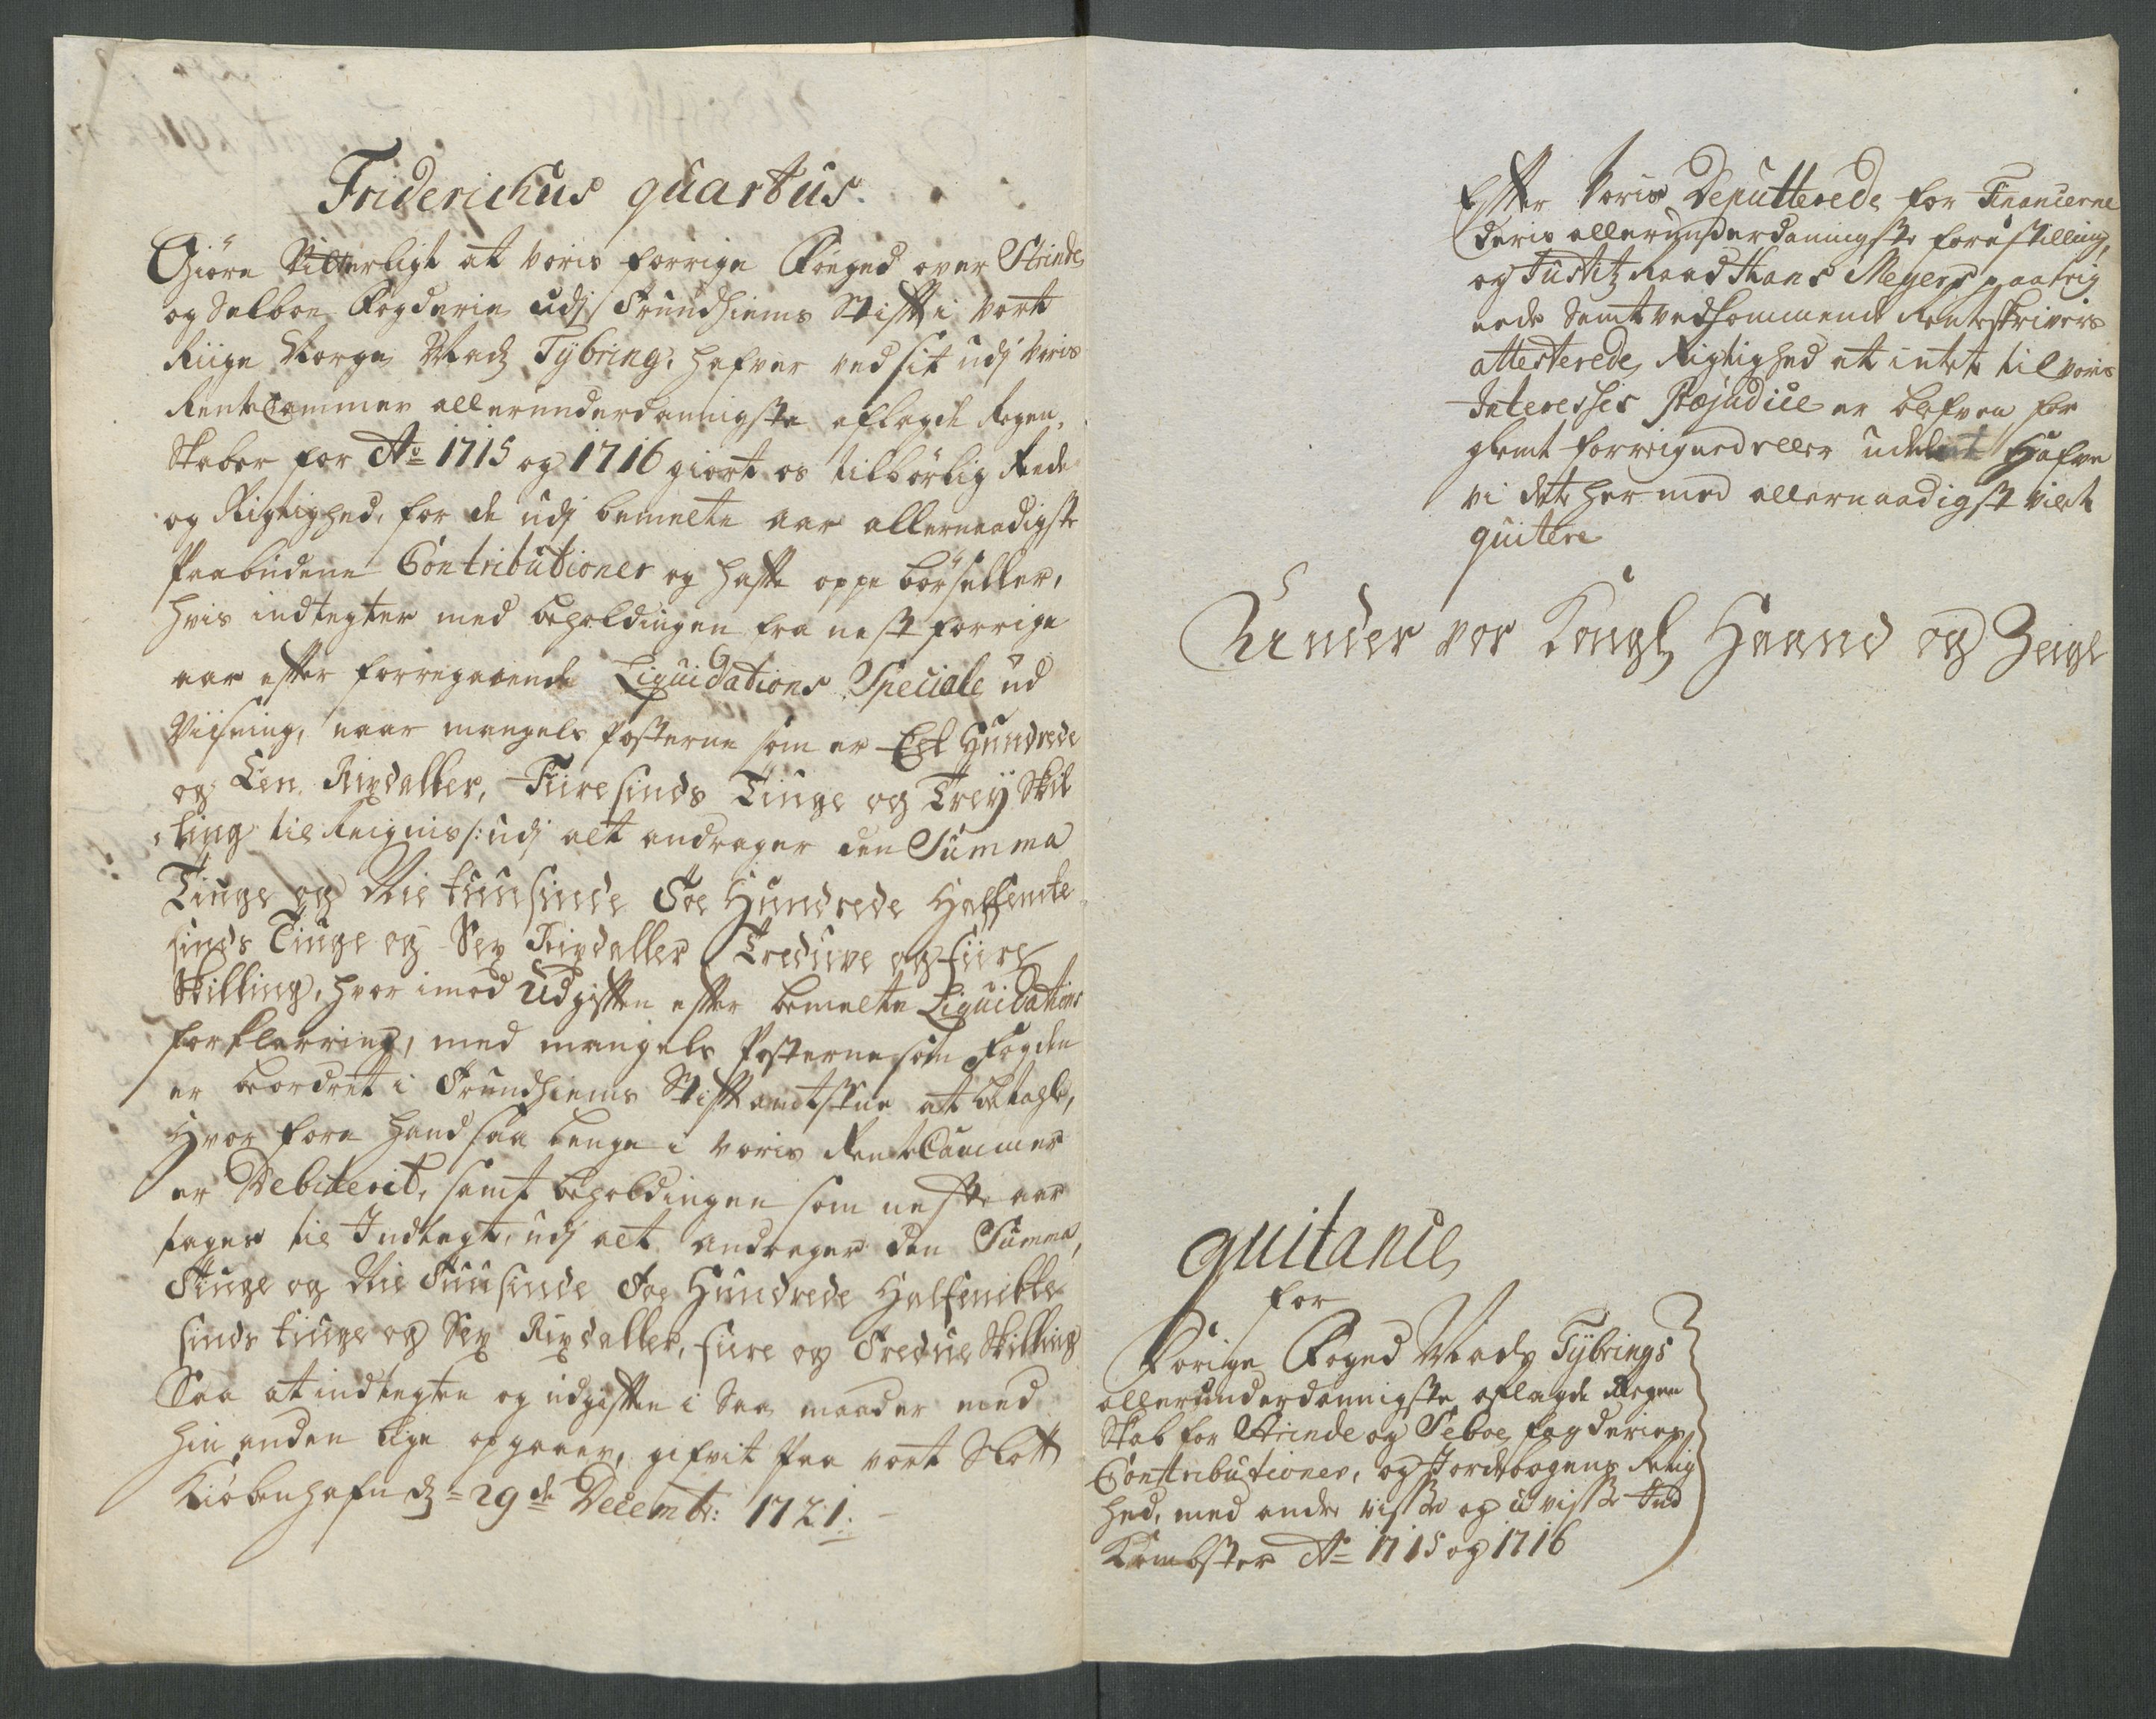 Friderichus quartus.
Giöre Vitterligt at voris forrige Foeged over Strinde
og Selboe Fogderie udj Trundhiems Stift i vort
Riige Norge Madz Tÿbring, hafver ved sit udj Voris
RenteCammer allerunderdannigste aflagde Regen-
skaber for Ao 1715 og 1716 giort os tilbörlig Rede
og Rigtighed, for de udj bemelte aar allernaadigste
Paabudene Contributioner og hafte oppebörseller,
hvis indtegter med beholdingen fra nest forrige
aar efter forregaaende Liquidations Speciale ud
Viisning, naar mangels Posterne som er Et Hundrede
og Een Rixdaller, Fiiresinds Tiuge og Treÿ Skil
ling til Reignis /: udj alt andrager den Summa
Tiuge og Nie tuusinde Toe Hundrede Halfemte
sinds Tiuge og Sex Rixdaller Treduve og fiire
Skilling, hvor imod Udgiften efter bemelte Liquidations
forklarring, med mangels Posterne som Fogden
er beordret i Trundhiems Stiftamtstue at betahle,
Hvor fore hand saa lenge i voris RenteCammer
er Debiterit, samt beholdingen som neste aar
tages til Indtegt, udj alt andrager den Summa,
Tiuge og Nie Tuusinde Toe Hundrede Halfemte
sinds tiuge og Sex Rixdaller, fiire og Tredue Skilling
Saa at indtegten og udgiften i saa maader med
hin anden lige opgaaer, gifvit paa vort Slott
Kiöbenhafn dz = 29de Decembr: 1721.
Efter Voris Deputterede for Financerne
deris allerunderdanigste forestilling,
og Justitz Raad Hans Meyers paateig
nede samt vedkommende Renteskrivers
attesterede Rigtighed at intet til voris
Interesses Præjudice er blefven for
glemt forreigned eller udeladt Hafve
vi dette her med allernaadigst vilt
quitere
Under vor Kongl Haand og Zeigl
quitance
for
Forige Foged Madz Tÿbrings
allerunderdannigste aflagde Regen
skab for Strinde og Selboe fogderies
Contributioner, og Jordebogens Retig
hed, med andre visse og uvisse Ind
Kombster Ao 1715 og 1716